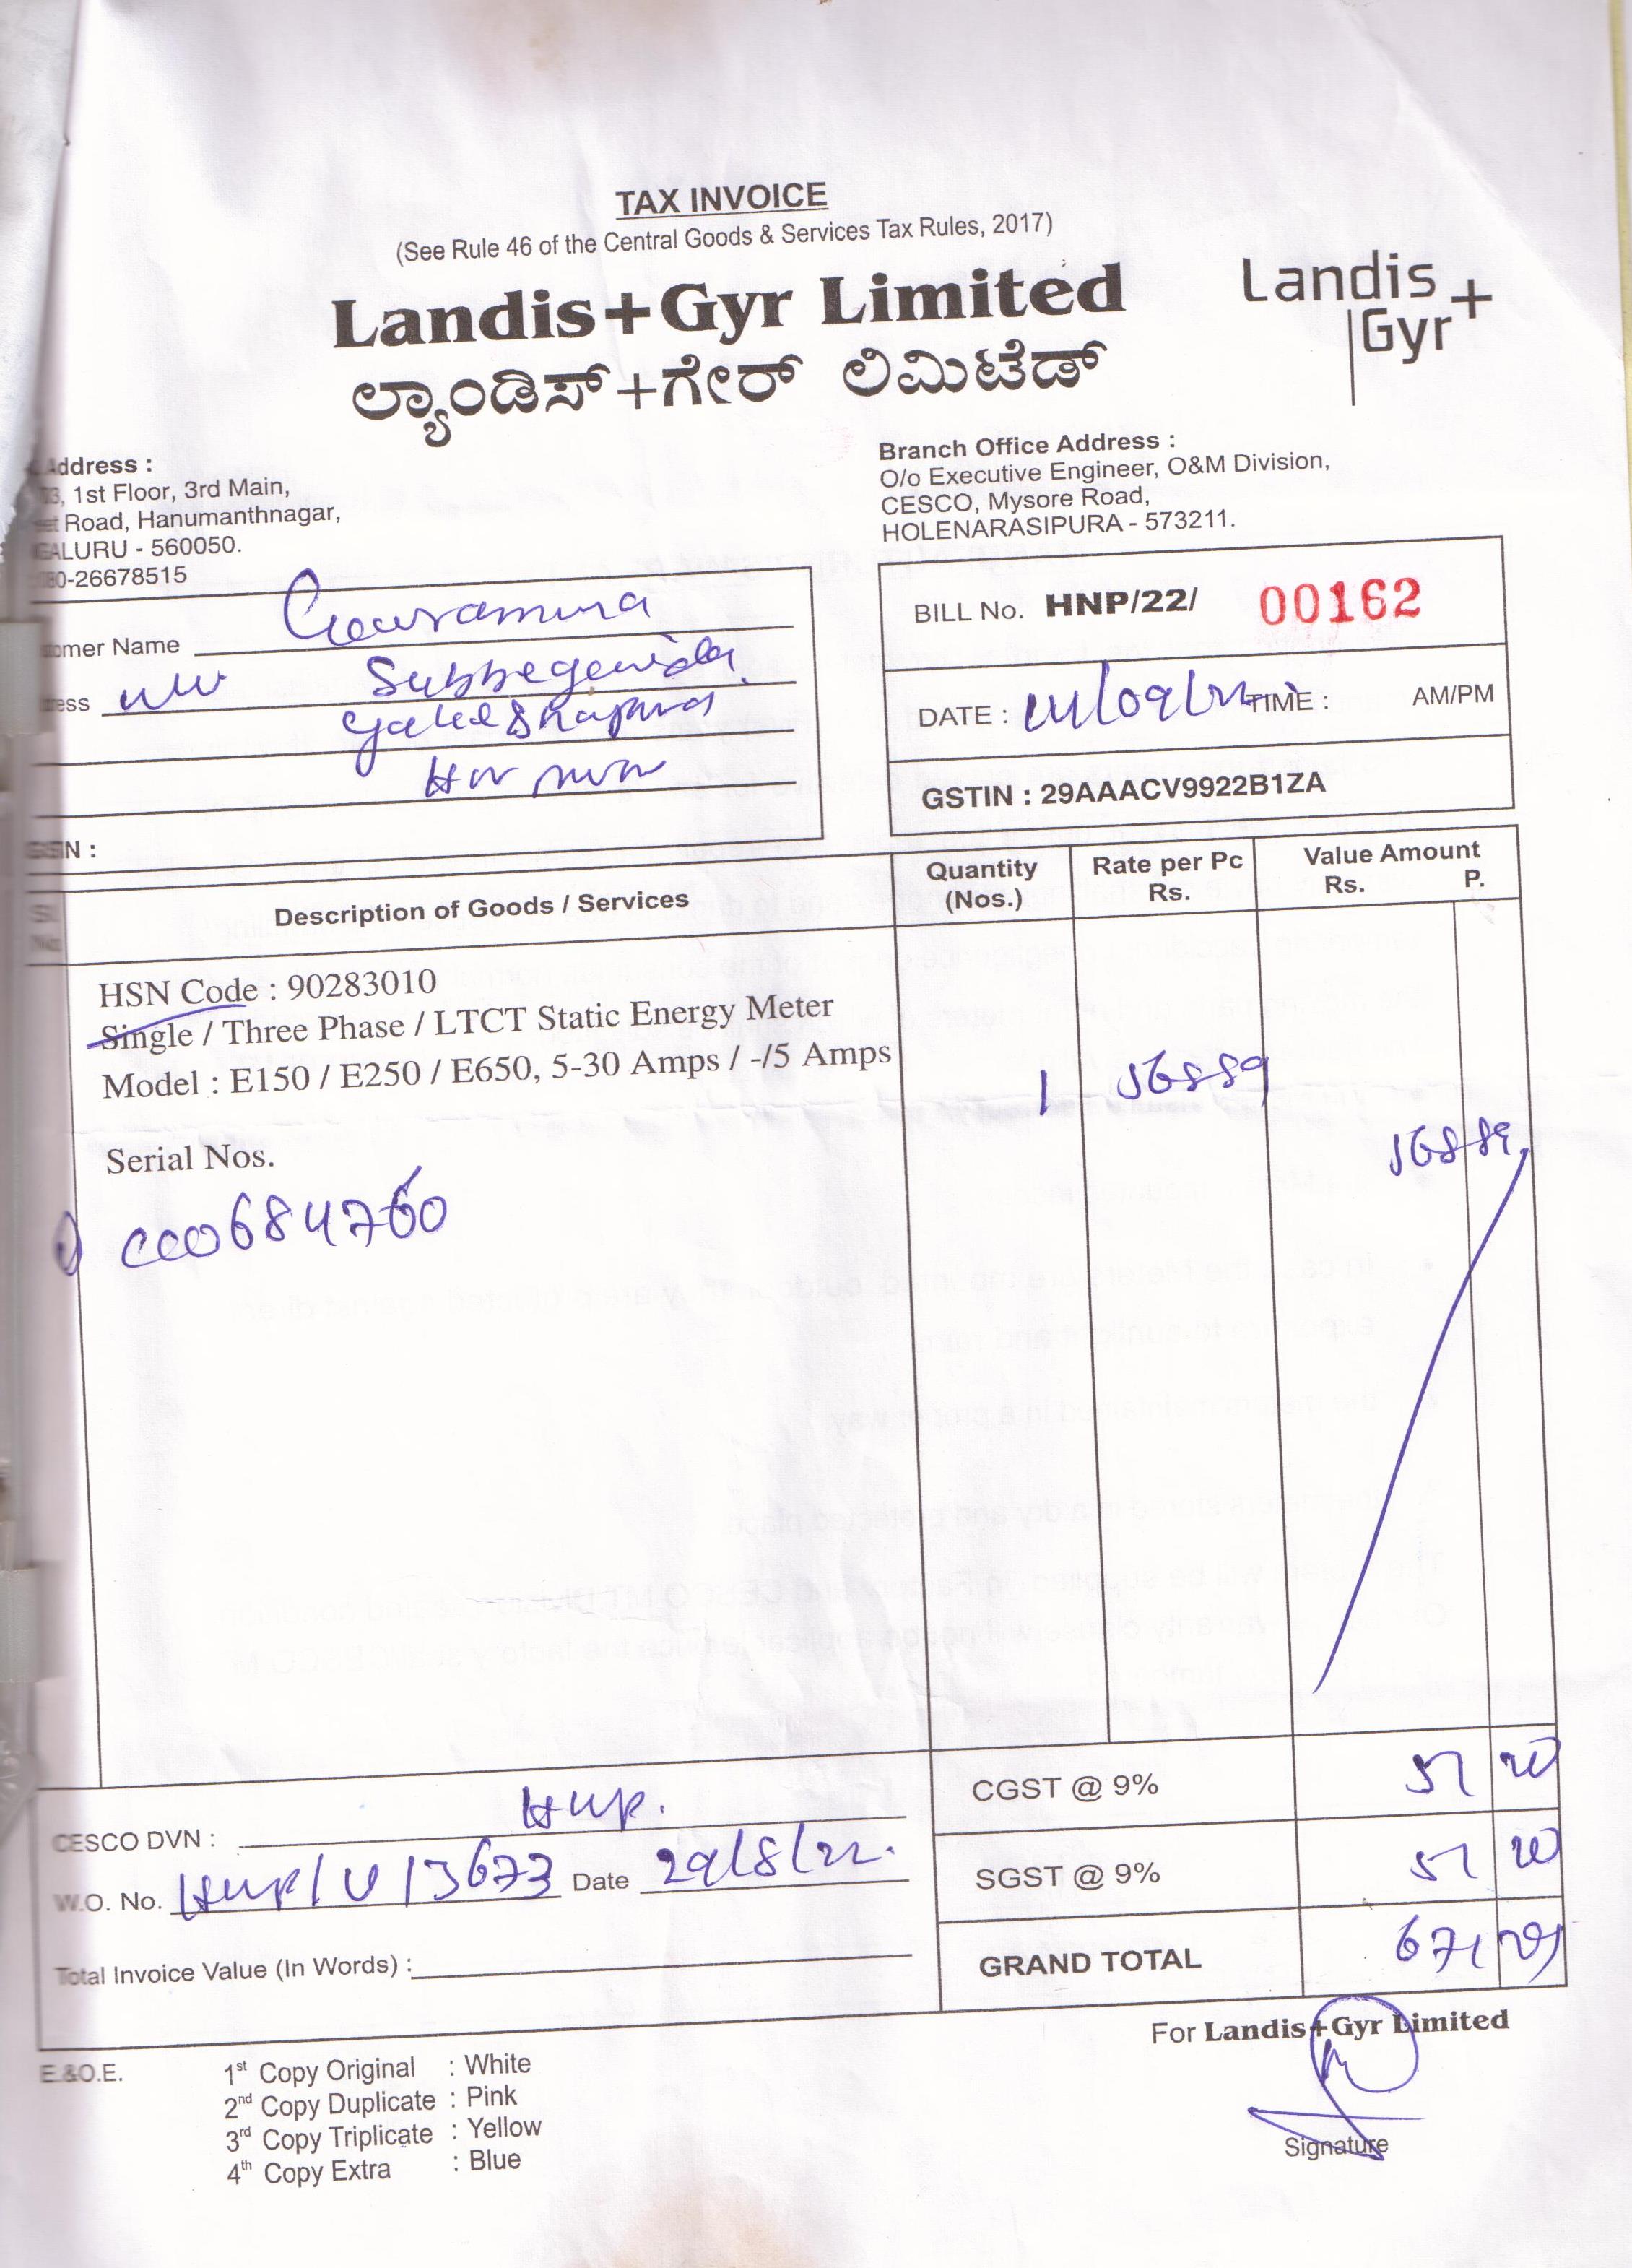 TAX INVOICE
(See Rule 46 of the Central Goods & Services Tax Rules, 2017)
Landis+Gyr Limited
ಲ್ಯಾಂಡಿಸ್+ಗೇರ್ ಲಿಮಿಟೆಡ್
Landis
Gyr+
Address :
1st Floor, 3rd Main,
Road, Hanumanthnagar,
GALURU - 560050.
080-26678515
Branch Office Address :
O/o Executive Engineer, O&M Division,
CESCO, Mysore Road,
HOLENARASIPURA - 573211.
omer Name Gowramma
ress
GSTIN :
BILL No. HNP/22/ 00162
DATE : TIME : AM/PM
GSTIN : 29AAACV9922B1ZA
Sl. No. Description of Goods / Services Quantity (Nos.) Rate per Pc Rs. Value Amount Rs. P.
HSN Code : 90283010
Single / Three Phase / LTCT Static Energy Meter
Model : E150 / E250 / E650, 5-30 Amps / -/5 Amps 1 568.89
568 89
Serial Nos.
684760
CGST @ 9% 51 20
SGST @ 9% 51 20
GRAND TOTAL 671 29
CESCO DVN : HNP.
W.O. No. HNP/ 13673 Date 29/8/22.
Total Invoice Value (In Words) :
For Landis+Gyr Limited
Signature
E.&O.E.
1st Copy Original : White
2nd Copy Duplicate : Pink
3rd Copy Triplicate : Yellow
4th Copy Extra : Blue